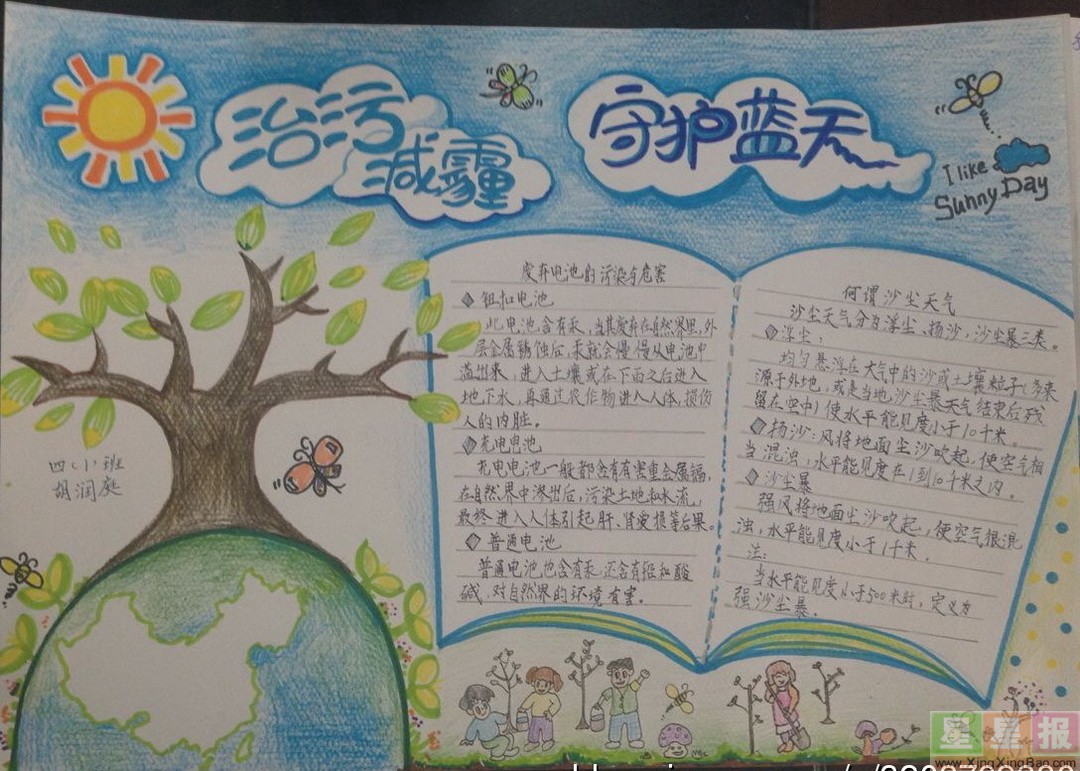 治污
减霾
守护蓝天
I like
Sunny Day
四(小)班
胡润庭
废弃电池的污染与危害
钮扣电池
此电池含有汞，当其废弃在自然界里，外
层金属锈蚀后，汞就会慢慢从电池中
溢出来，进入土壤或在下雨之后进入
地下水，再通过农作物进入人体，损伤
人的内脏。
充电电池
充电电池一般都含有有害重金属镉，
在自然界中渗出后，污染土地和水流，
最终进入人体引起肝、肾受损等后果。
普通电池
普通电池也含有汞，还含有铅和酸
碱，对自然界的环境有害。
何谓沙尘天气
沙尘天气分为浮尘、扬沙，沙尘暴三类。
浮尘：
均匀悬浮在大气中的沙或土壤粒子（多来
源于外地，或是当地沙尘暴天气结束后残
留在空中）使水平能见度小于10千米。
扬沙：风将地面尘沙吹起，使空气相
当混浊，水平能见度在1到10千米之内。
沙尘暴
强风将地面尘沙吹起，使空气很混
浊，水平能见度小于1千米。
注：
当水平能见度小于500米时，定义为
强沙尘暴。
星星报
www.XingXingBao.com